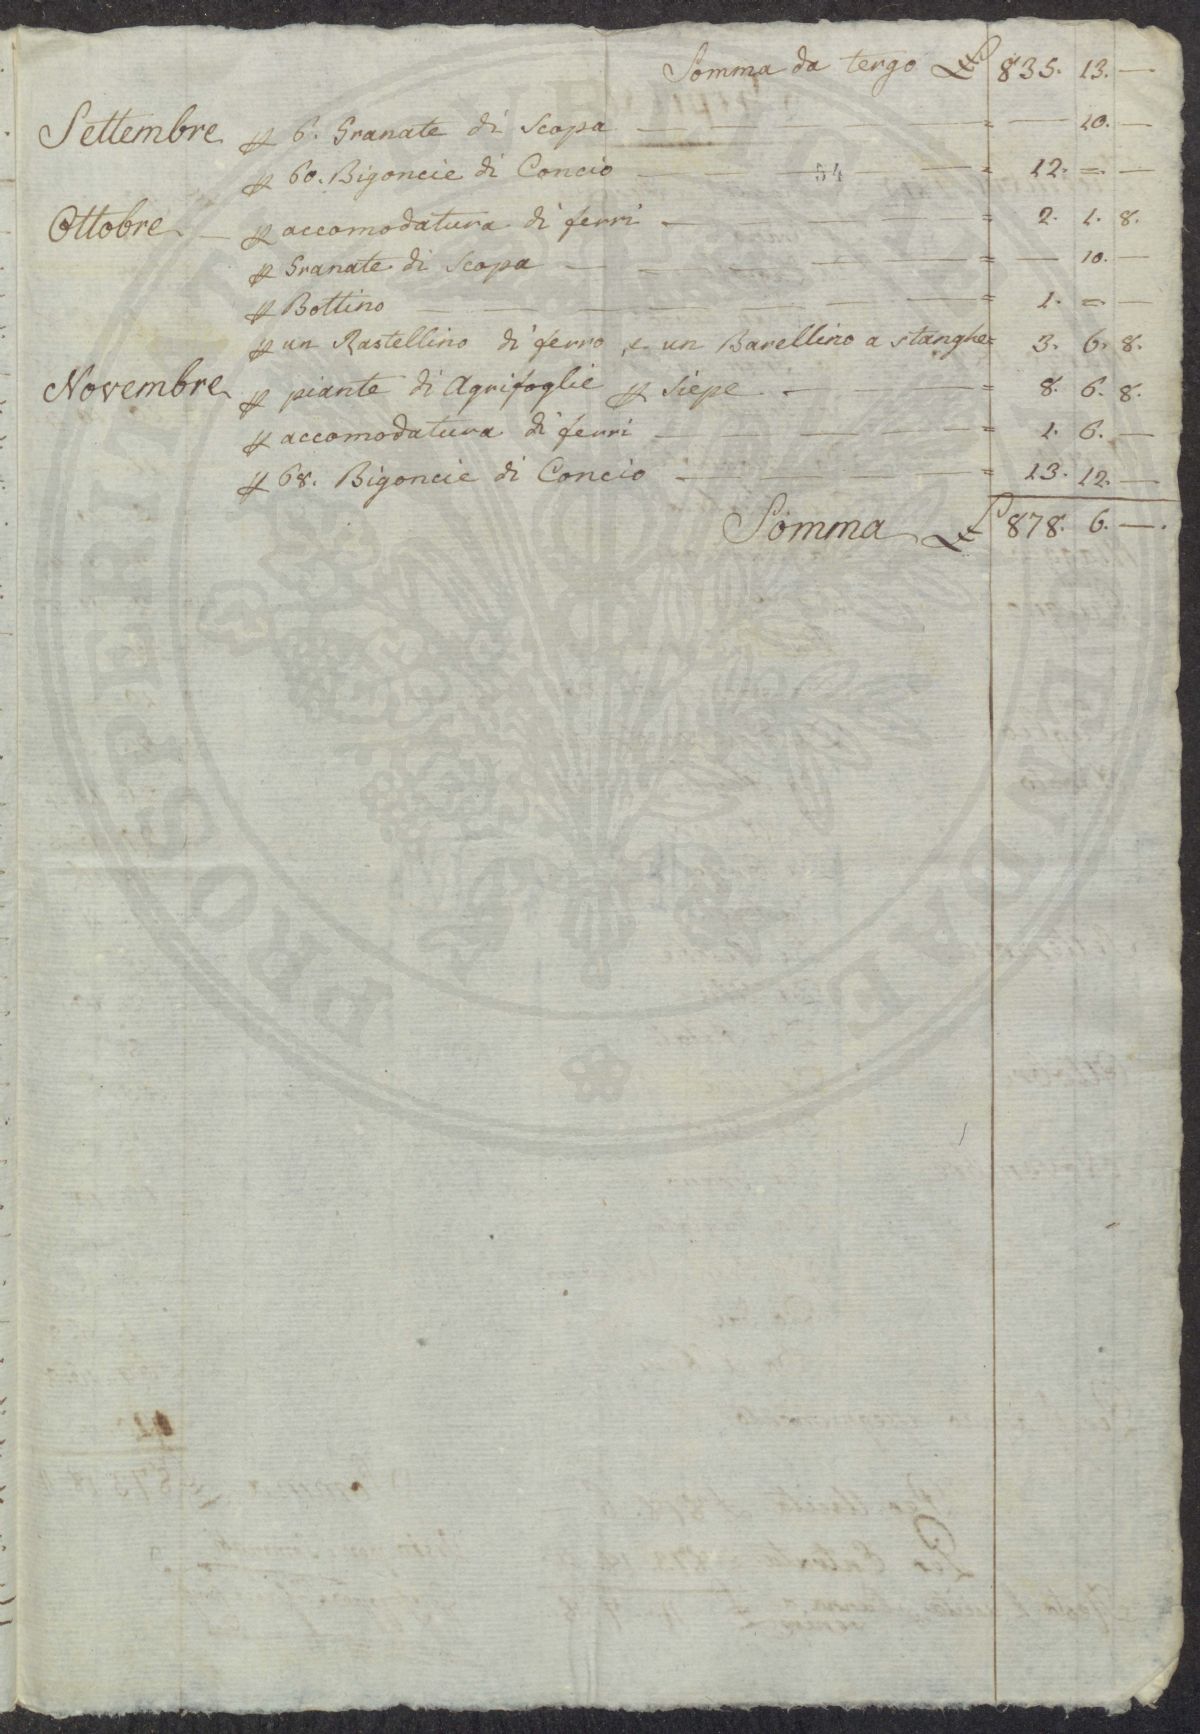 Somma da tergo £ 835. 13. —
Settembre p 6. Granate di Scopa — = — 10. —
p 60. Bigoncie di Concio — = 12. = —
54
Ottobre — p accomodatura di ferri — = 2. 1. 8.
p Granate di Scopa — = — 10. —
p Bottino — = 1. = —
p un Rastellino di ferro, e un Barellino a stanghe = 3. 6. 8.
Novembre p piante di Agrifoglie p Siepe — = 8. 6. 8.
p accomodatura di ferri — = 1. 6. —
p 68. Bigoncie di Concio — = 13. 12. —
Somma £ 878. 6. —.